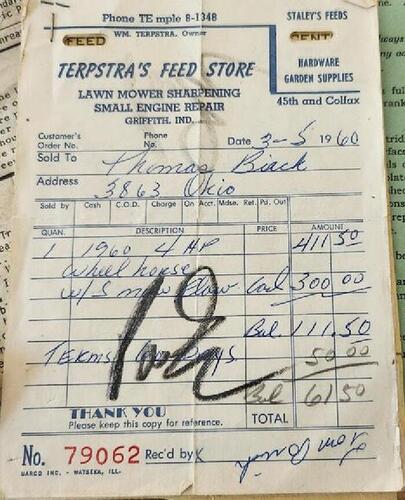 Phone TE mple 8-1348
STALEY'S FEEDS
WM. TERPSTRA, Owner
FEED
CENT
TERPSTRA'S FEED STORE
HARDWARE
GARDEN SUPPLIES
LAWN MOWER SHARPENING
SMALL ENGINE REPAIR
GRIFFITH, IND.
45th and Colfax
Customer's Order No. Phone No. Date 3-5 1960
Sold To Thomas
Address 3863 Ohio
Sold by Cash C.O.D. Charge On Acct. Mdse. Ret. Pd. Out
QUAN. DESCRIPTION PRICE AMOUNT
1 1960 4 HP 411 50
wheel horse
w/ Snow Plow 300 00
Bal 111.50
TERMS Days 50 00
Bal 61 50
THANK YOU
Please keep this copy for reference.
TOTAL
No. 79062 Rec'd by X
BARCO INC. - WATSEKA, ILL.